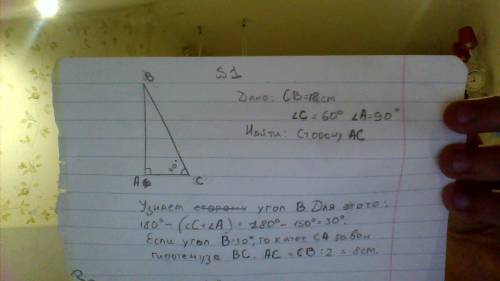 №1
B
Дано: CB=16см
∠C = 60° ∠A=90°
Найти: сторону AC
60°
A C
Узнаем сторону угол B. Для этого:
180° - (∠C+∠A) = 180° - 150° = 30°.
Если угол B=30°, то катет CA
гипотенуза BC. AC = CB : 2 = 8см.